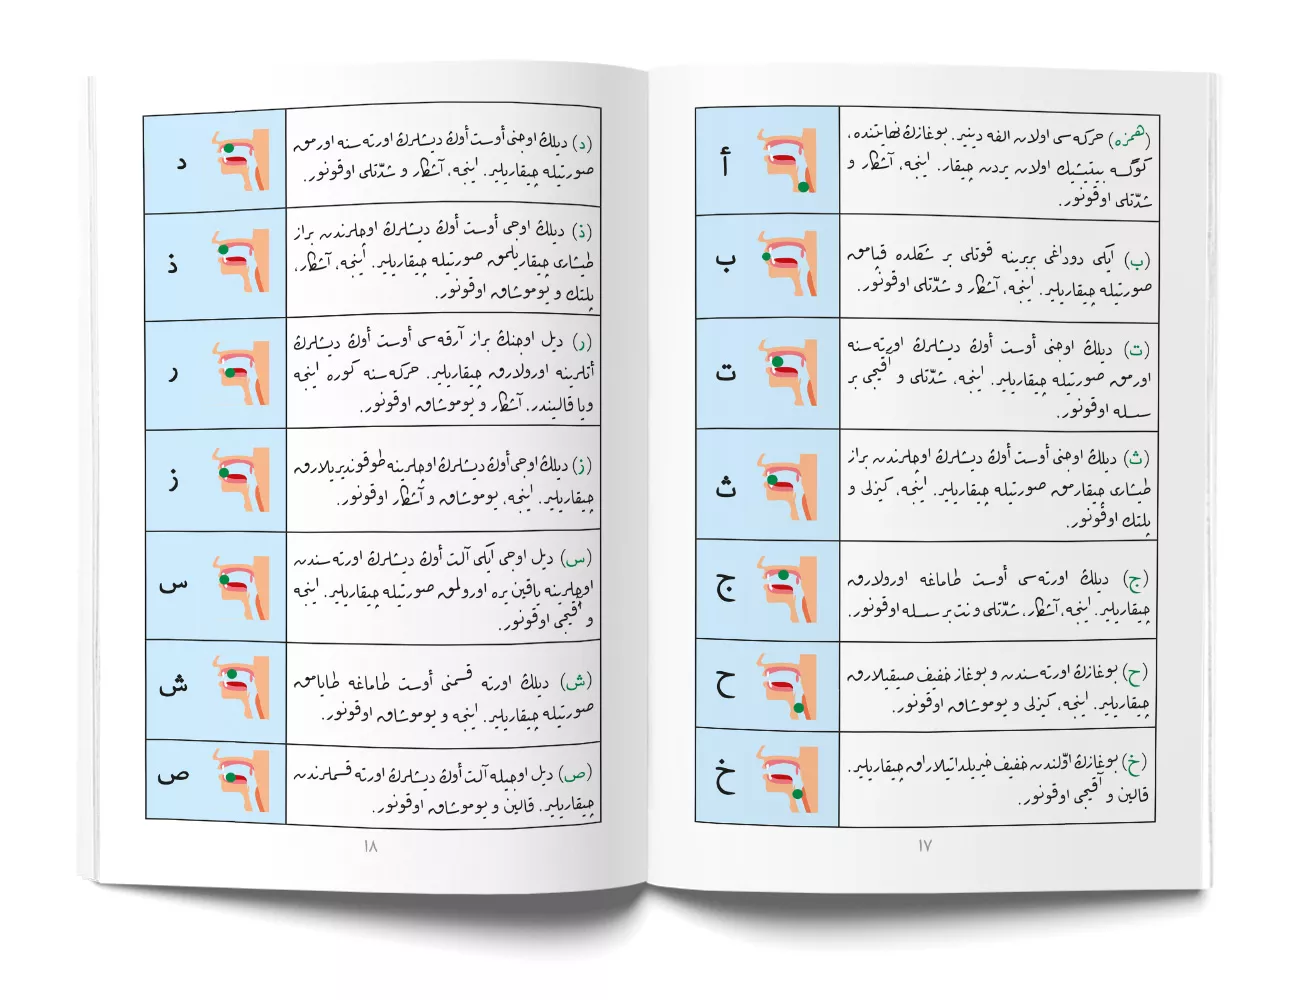 (همزه) حركه‌سی اولان الفه دینیر. بوغازڭ نهایتنده،
كوگسه بیتیشیك اولان یردن چیقار. اینجه، آشكار و
شدّتلی اوقونور.
أ
(ب) ایكی دوداغی بربرینه قوتلی بر شكلده قپامق
صورتیله چیقاریلیر. اینجه، آشكار و شدّتلی اوقونور.
ب
(ت) دیلڭ اوجنی أوست أوڭ دیشلرڭ اورته‌سنه
اورمق صورتیله چیقاریلیر. اینجه، شدّتلی و آقیجی بر
سسله اوقونور.
ت
(ث) دیلڭ اوجنی أوست أوڭ دیشلرڭ اوجلرندن براز
طیشاری چیقارمق صورتیله چیقاریلیر. اینجه، كیزلی و
پلتك اوقونور.
ث
(ج) دیلڭ اورته‌سی أوست طاماغه اورولارق
چیقاریلیر. اینجه، آشكار، شدّتلی و نت بر سسله اوقونور.
ج
(ح) بوغازڭ اورته‌سندن و بوغاز خفیف صیقیلارق
چیقاریلیر. اینجه، كیزلی و یوموشاق اوقونور.
ح
(خ) بوغازڭ اوّلندن خفیف خیریلداتیلارق چیقاریلیر.
قالین و آقیجی اوقونور.
خ
١٧
(د) دیلڭ اوجنی أوست أوڭ دیشلرڭ اورته‌سنه اورمق
صورتیله چیقاریلیر. اینجه، آشكار و شدّتلی اوقونور.
د
(ذ) دیلڭ اوجی أوست أوڭ دیشلرڭ اوجلرندن براز
طیشاری چیقاریلمق صورتیله چیقاریلیر. اینجه، آشكار،
پلتك و یوموشاق اوقونور.
ذ
(ر) دیل اوجنڭ براز آرقه‌سی أوست أوڭ دیشلرڭ
أتلرینه اورولارق چیقاریلیر. حركه‌سنه كوره اینجه
ویا قالیندر. آشكار و یوموشاق اوقونور.
ر
(ز) دیلڭ اوجی أوڭ دیشلرڭ اوجلرینه طوقوندیریلارق
چیقاریلیر. اینجه، یوموشاق و آشكار اوقونور.
ز
(س) دیل اوجی ایكی آلت أوڭ دیشلرڭ اورته‌سندن
اوجلرینه یاقین یره اورولمق صورتیله چیقاریلیر. اینجه
و آقیجی اوقونور.
س
(ش) دیلڭ اورته قسمنی أوست طاماغه طایامق
صورتیله چیقاریلیر. اینجه و یوموشاق اوقونور.
ش
(ص) دیل اوجیله آلت أوڭ دیشلرڭ اورته قسملرندن
چیقاریلیر. قالین و یوموشاق اوقونور.
ص
١٨